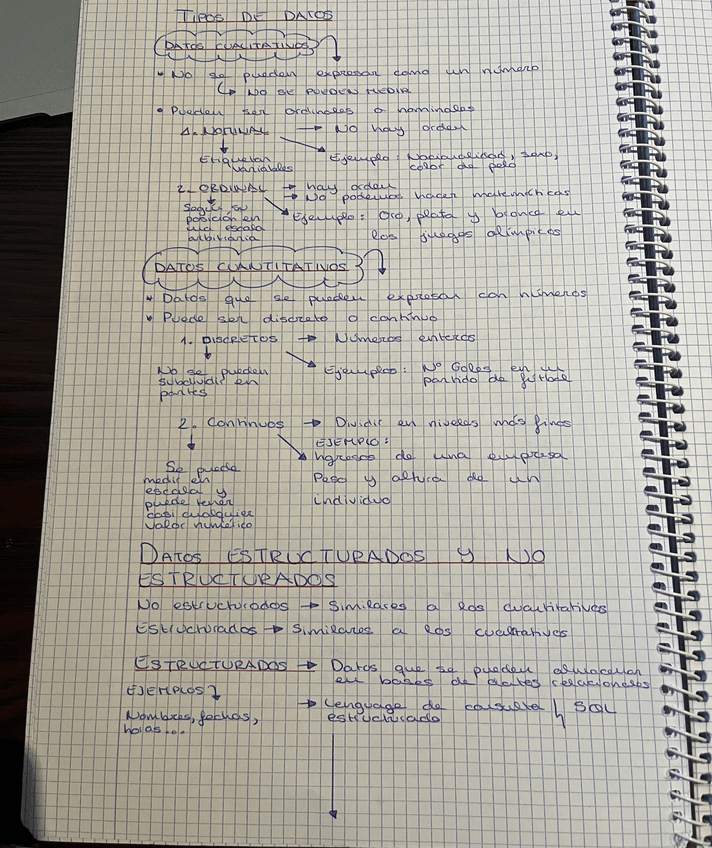 TIPOS DE DATOS
DATOS CUALITATIVOS
• No se pueden expresar como un número
↳ NO SE PUEDEN MEDIR
• Pueden ser ordinales o nominales
1. NOMINAL → No hay orden
Etiquetan variables
Ejemplo: Nacionalidad, sexo,
color de pelo
2. ORDINAL → hay orden
→ No podemos hacer matemáticas
Según su
posición en
una escala
arbitraria
Ejemplo: Oro, plata y bronce en
los juegos olímpicos
DATOS CUANTITATIVOS
• Datos que se pueden expresar con números
• Puede ser discreto o continuo
1. DISCRETOS → Números enteros
No se pueden
subdividir en
partes
Ejemplos: Nº Goles en un
partido de fútbol
2. Continuos → Dividir en niveles más finos
Se puede
medir en
escala y
puede tener
casi cualquier
valor numérico
EJEMPLO:
Ingresos de una empresa
Peso y altura de un
individuo
DATOS ESTRUCTURADOS Y NO
ESTRUCTURADOS
No estructurados → Similares a los cuantitativos
Estructurados → Similares a los cualitativos
ESTRUCTURADOS → Datos que se pueden almacenar
en bases de datos relacionales
EJEMPLOS
Nombres, fechas,
hojas...
→ Lenguage de consulta
estructurado
SQL